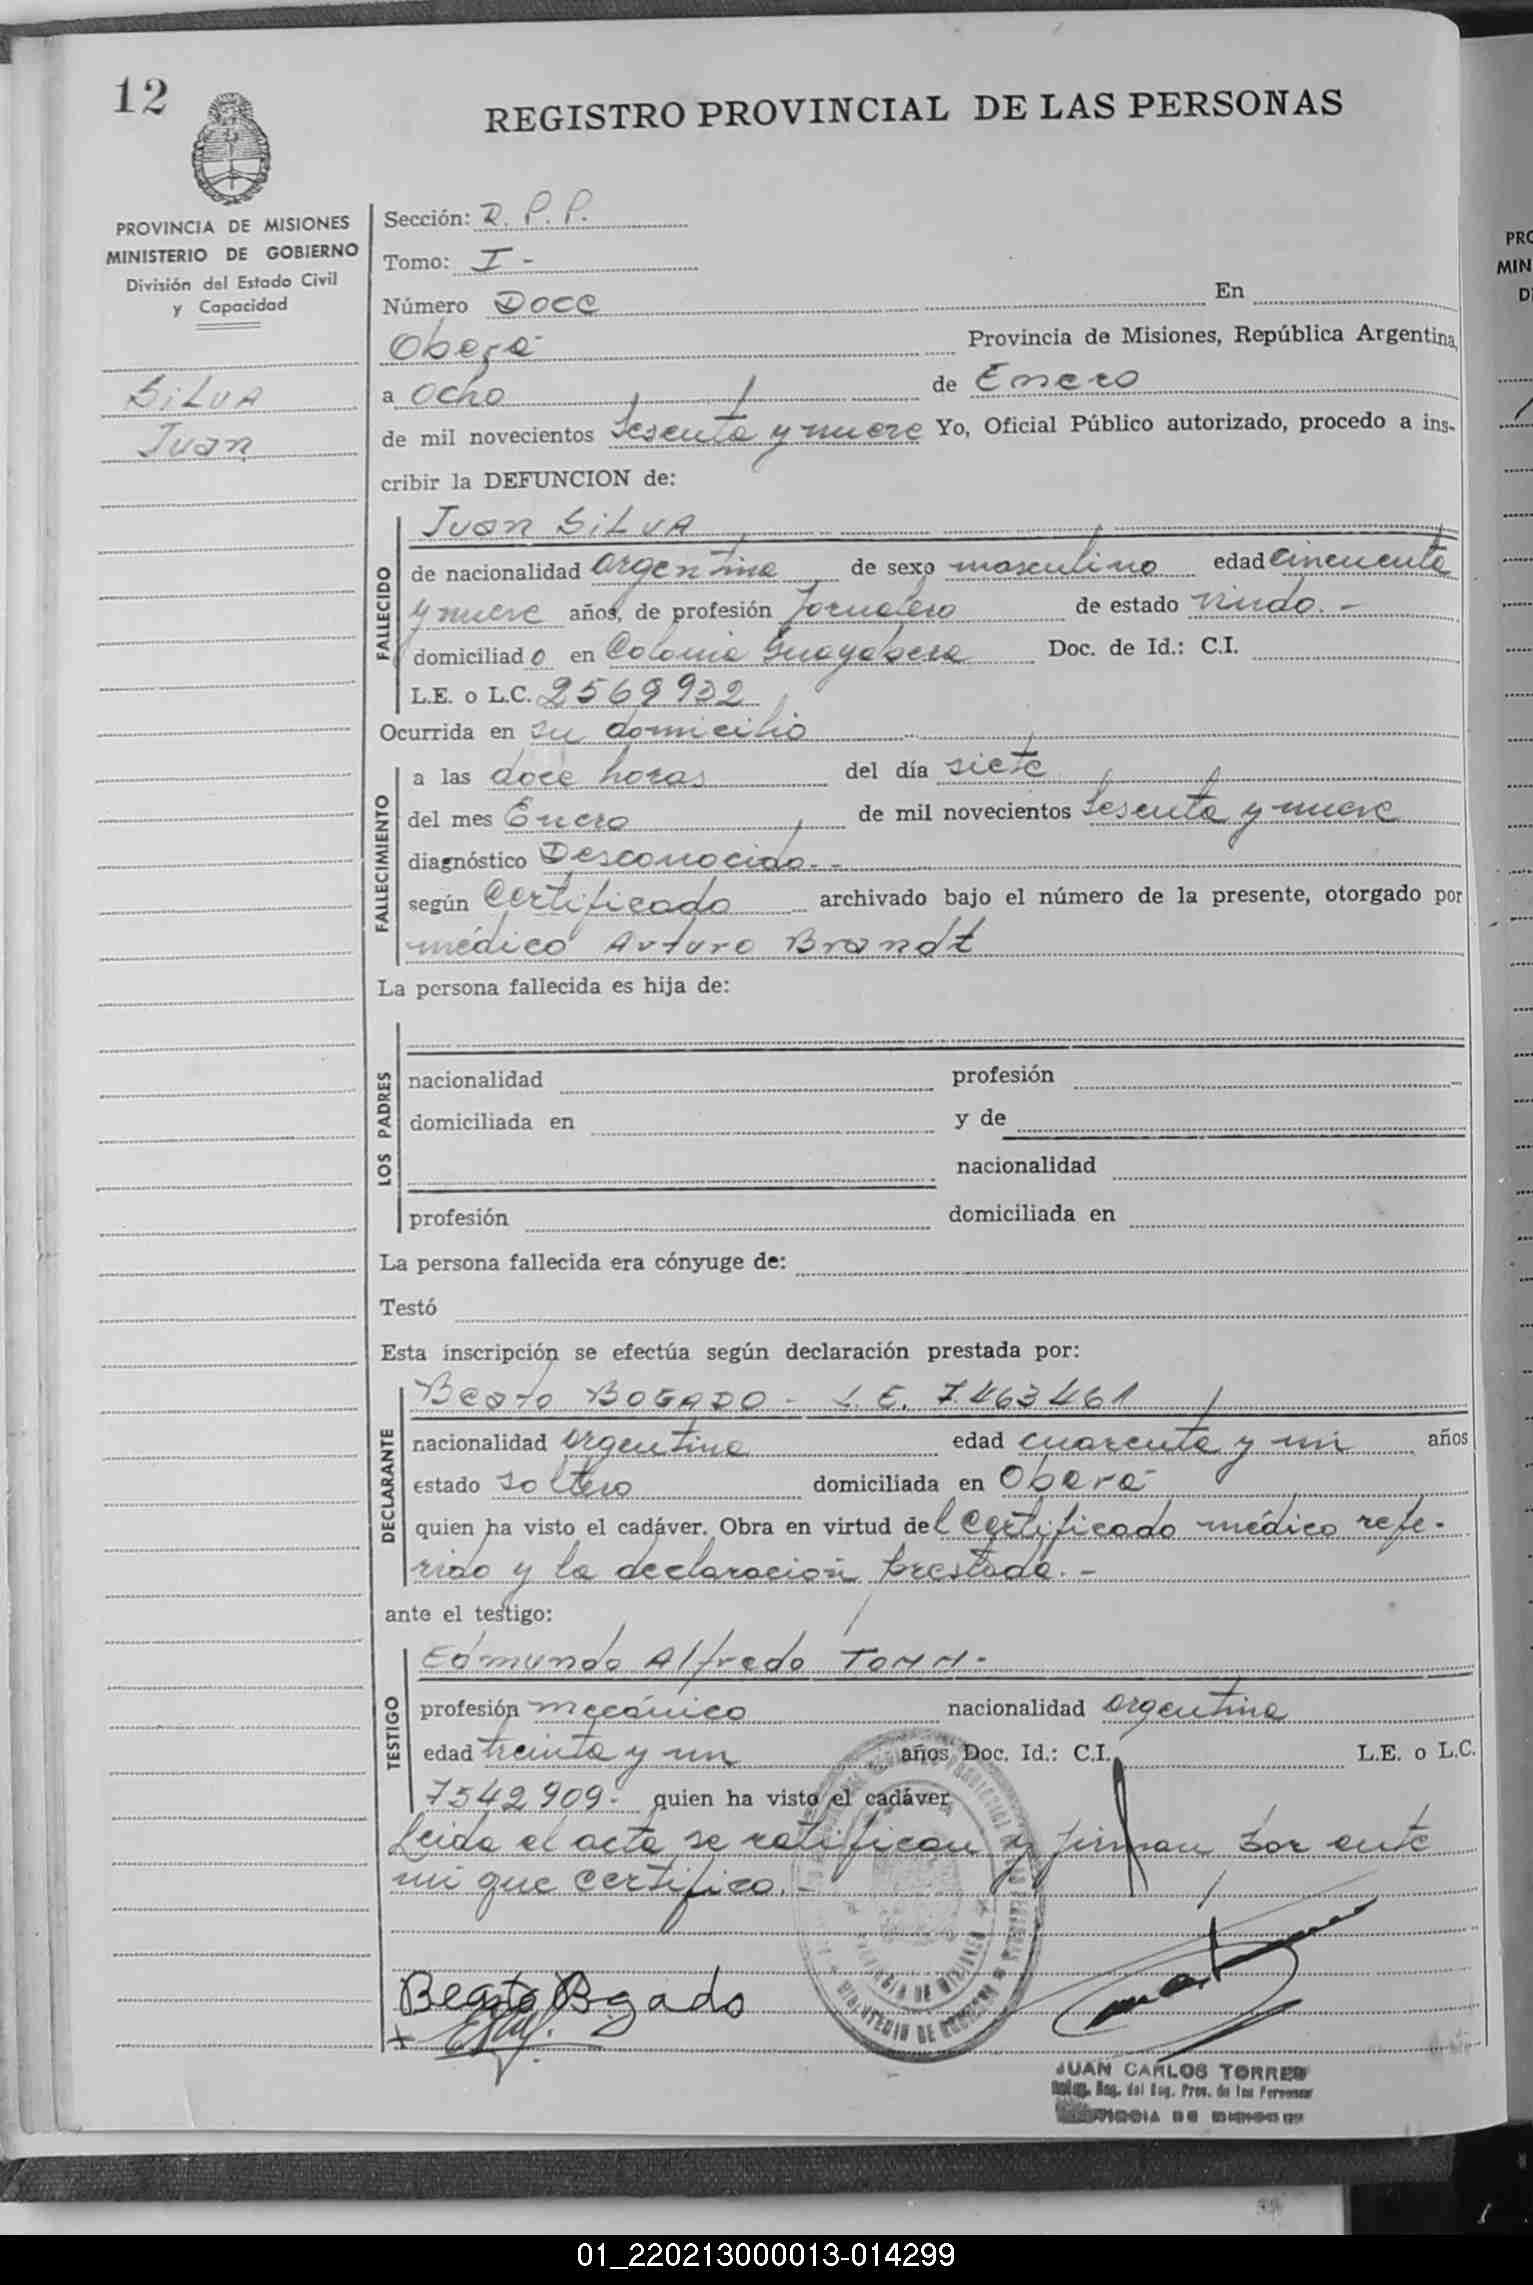 12
REGISTRO PROVINCIAL DE LAS PERSONAS
PROVINCIA DE MISIONES
MINISTERIO DE GOBIERNO
División del Estado Civil
y Capacidad
SILVA
Juan
Sección: R. P. P.
Tomo: I -
Número Doce En
Oberá Provincia de Misiones, República Argentina,
a Ocho de Enero
de mil novecientos sesenta y nueve Yo, Oficial Público autorizado, procedo a ins-
cribir la DEFUNCION de:
FALLECIDO
Juan SILVA
de nacionalidad argentina de sexo masculino edad cincuenta
y nueve años, de profesión Jornalero de estado viudo. -
domiciliado en Colonia Guayabera Doc. de Id.: C.I.
L.E. o L.C. 2569932
Ocurrida en su domicilio
FALLECIMIENTO
a las doce horas del día siete
del mes Enero de mil novecientos sesenta y nueve
diagnóstico Desconocido. -
según Certificado archivado bajo el número de la presente, otorgado por
médico Arturo Brandt
La persona fallecida es hija de:
LOS PADRES
nacionalidad profesión
domiciliada en y de
nacionalidad
profesión domiciliada en
La persona fallecida era cónyuge de:
Testó
Esta inscripción se efectúa según declaración prestada por:
DECLARANTE
Beato BOGADO - L.E. 7.463461
nacionalidad argentina edad cuarenta y un años
estado soltero domiciliada en Oberá
quien ha visto el cadáver. Obra en virtud del Certificado médico refe-
rido y la declaración prestada. -
ante el testigo:
TESTIGO
Edmundo Alfredo TOMM -
profesión mecánico nacionalidad argentina
edad treinta y un años Doc. Id.: C.I. L.E. o L.C.
7542909- quien ha visto el cadáver
Leida el acta se ratifican y firman por ante
mi que certifico. -
Beato Bogado
JUAN CARLOS TORRES
Reg. del Reg. Prov. de las Personas
PROVINCIA DE MISIONES
01_220213000013-014299